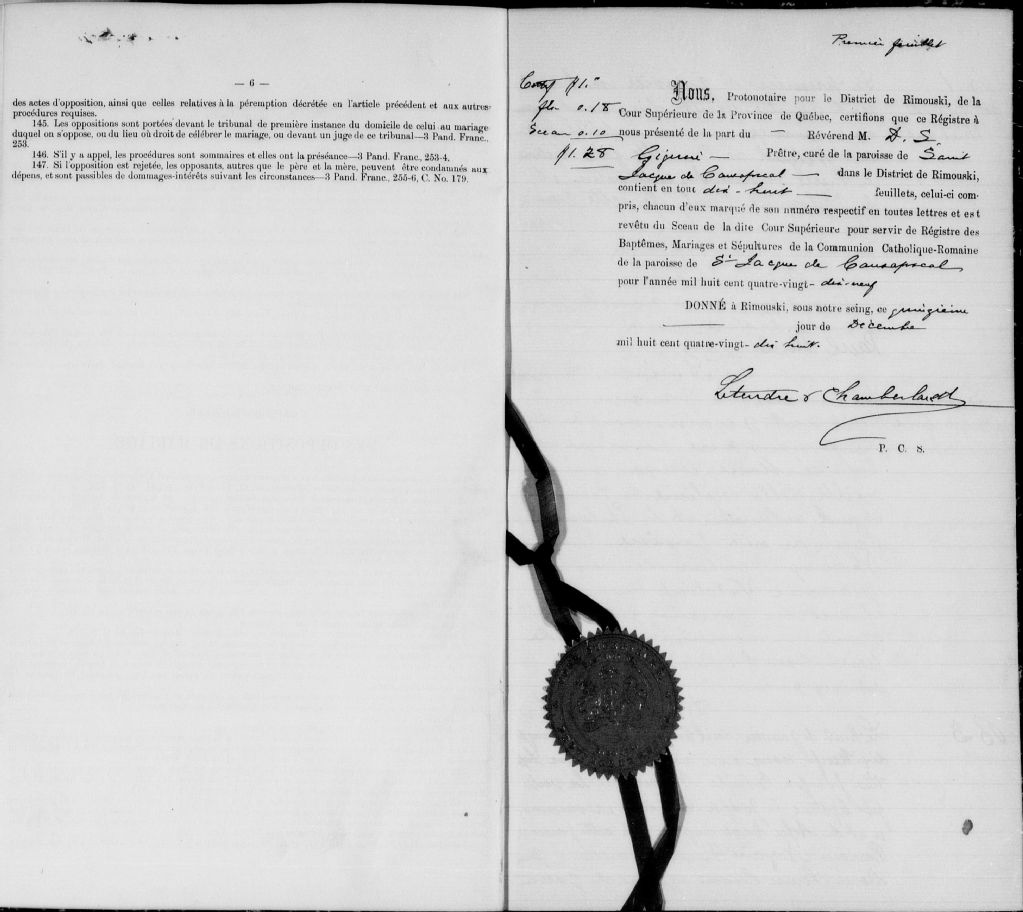 — 6 —
des actes d'opposition, ainsi que celles relatives à la péremption décrétée en l'article précédent et aux autres
procédures requises.
145. Les oppositions sont portées devant le tribunal de première instance du domicile de celui au mariage
duquel on s'oppose, ou du lieu où droit de célébrer le mariage, ou devant un juge de ce tribunal—3 Pand. Franc.,
253.
146. S'il y a appel, les procédures sont sommaires et elles ont la préséance—3 Pand. Franc., 253-4.
147. Si l'opposition est rejetée, les opposants, autres que le père et la mère, peuvent être condamnés aux
dépens, et sont passibles de dommages-intérêts suivant les circonstances—3 Pand. Franc., 255-6, C. No. 179.
Premier feuillet
$1.
0.18
Sceau 0.10
$1.28
Nous, Protonotaire pour le District de Rimouski, de la
Cour Supérieure de la Province de Québec, certifions que ce Régistre à
nous présenté de la part du — Révérend M. D. S.
— Prêtre, curé de la paroisse de Saint
Jacque de Causapscal — dans le District de Rimouski,
contient en tout dix-huit — feuillets, celui-ci com-
pris, chacun d'eux marqué de son numéro respectif en toutes lettres et est
revêtu du Sceau de la dite Cour Supérieure pour servir de Régistre des
Baptêmes, Mariages et Sépultures de la Communion Catholique-Romaine
de la paroisse de St Jacque de Causapscal
pour l'année mil huit cent quatre-vingt- dix-neuf
DONNÉ à Rimouski, sous notre seing, ce quinzieme
— jour de Décembre
mil huit cent quatre-vingt- dix huit.
Letendre & Chamberland
P. C. S.